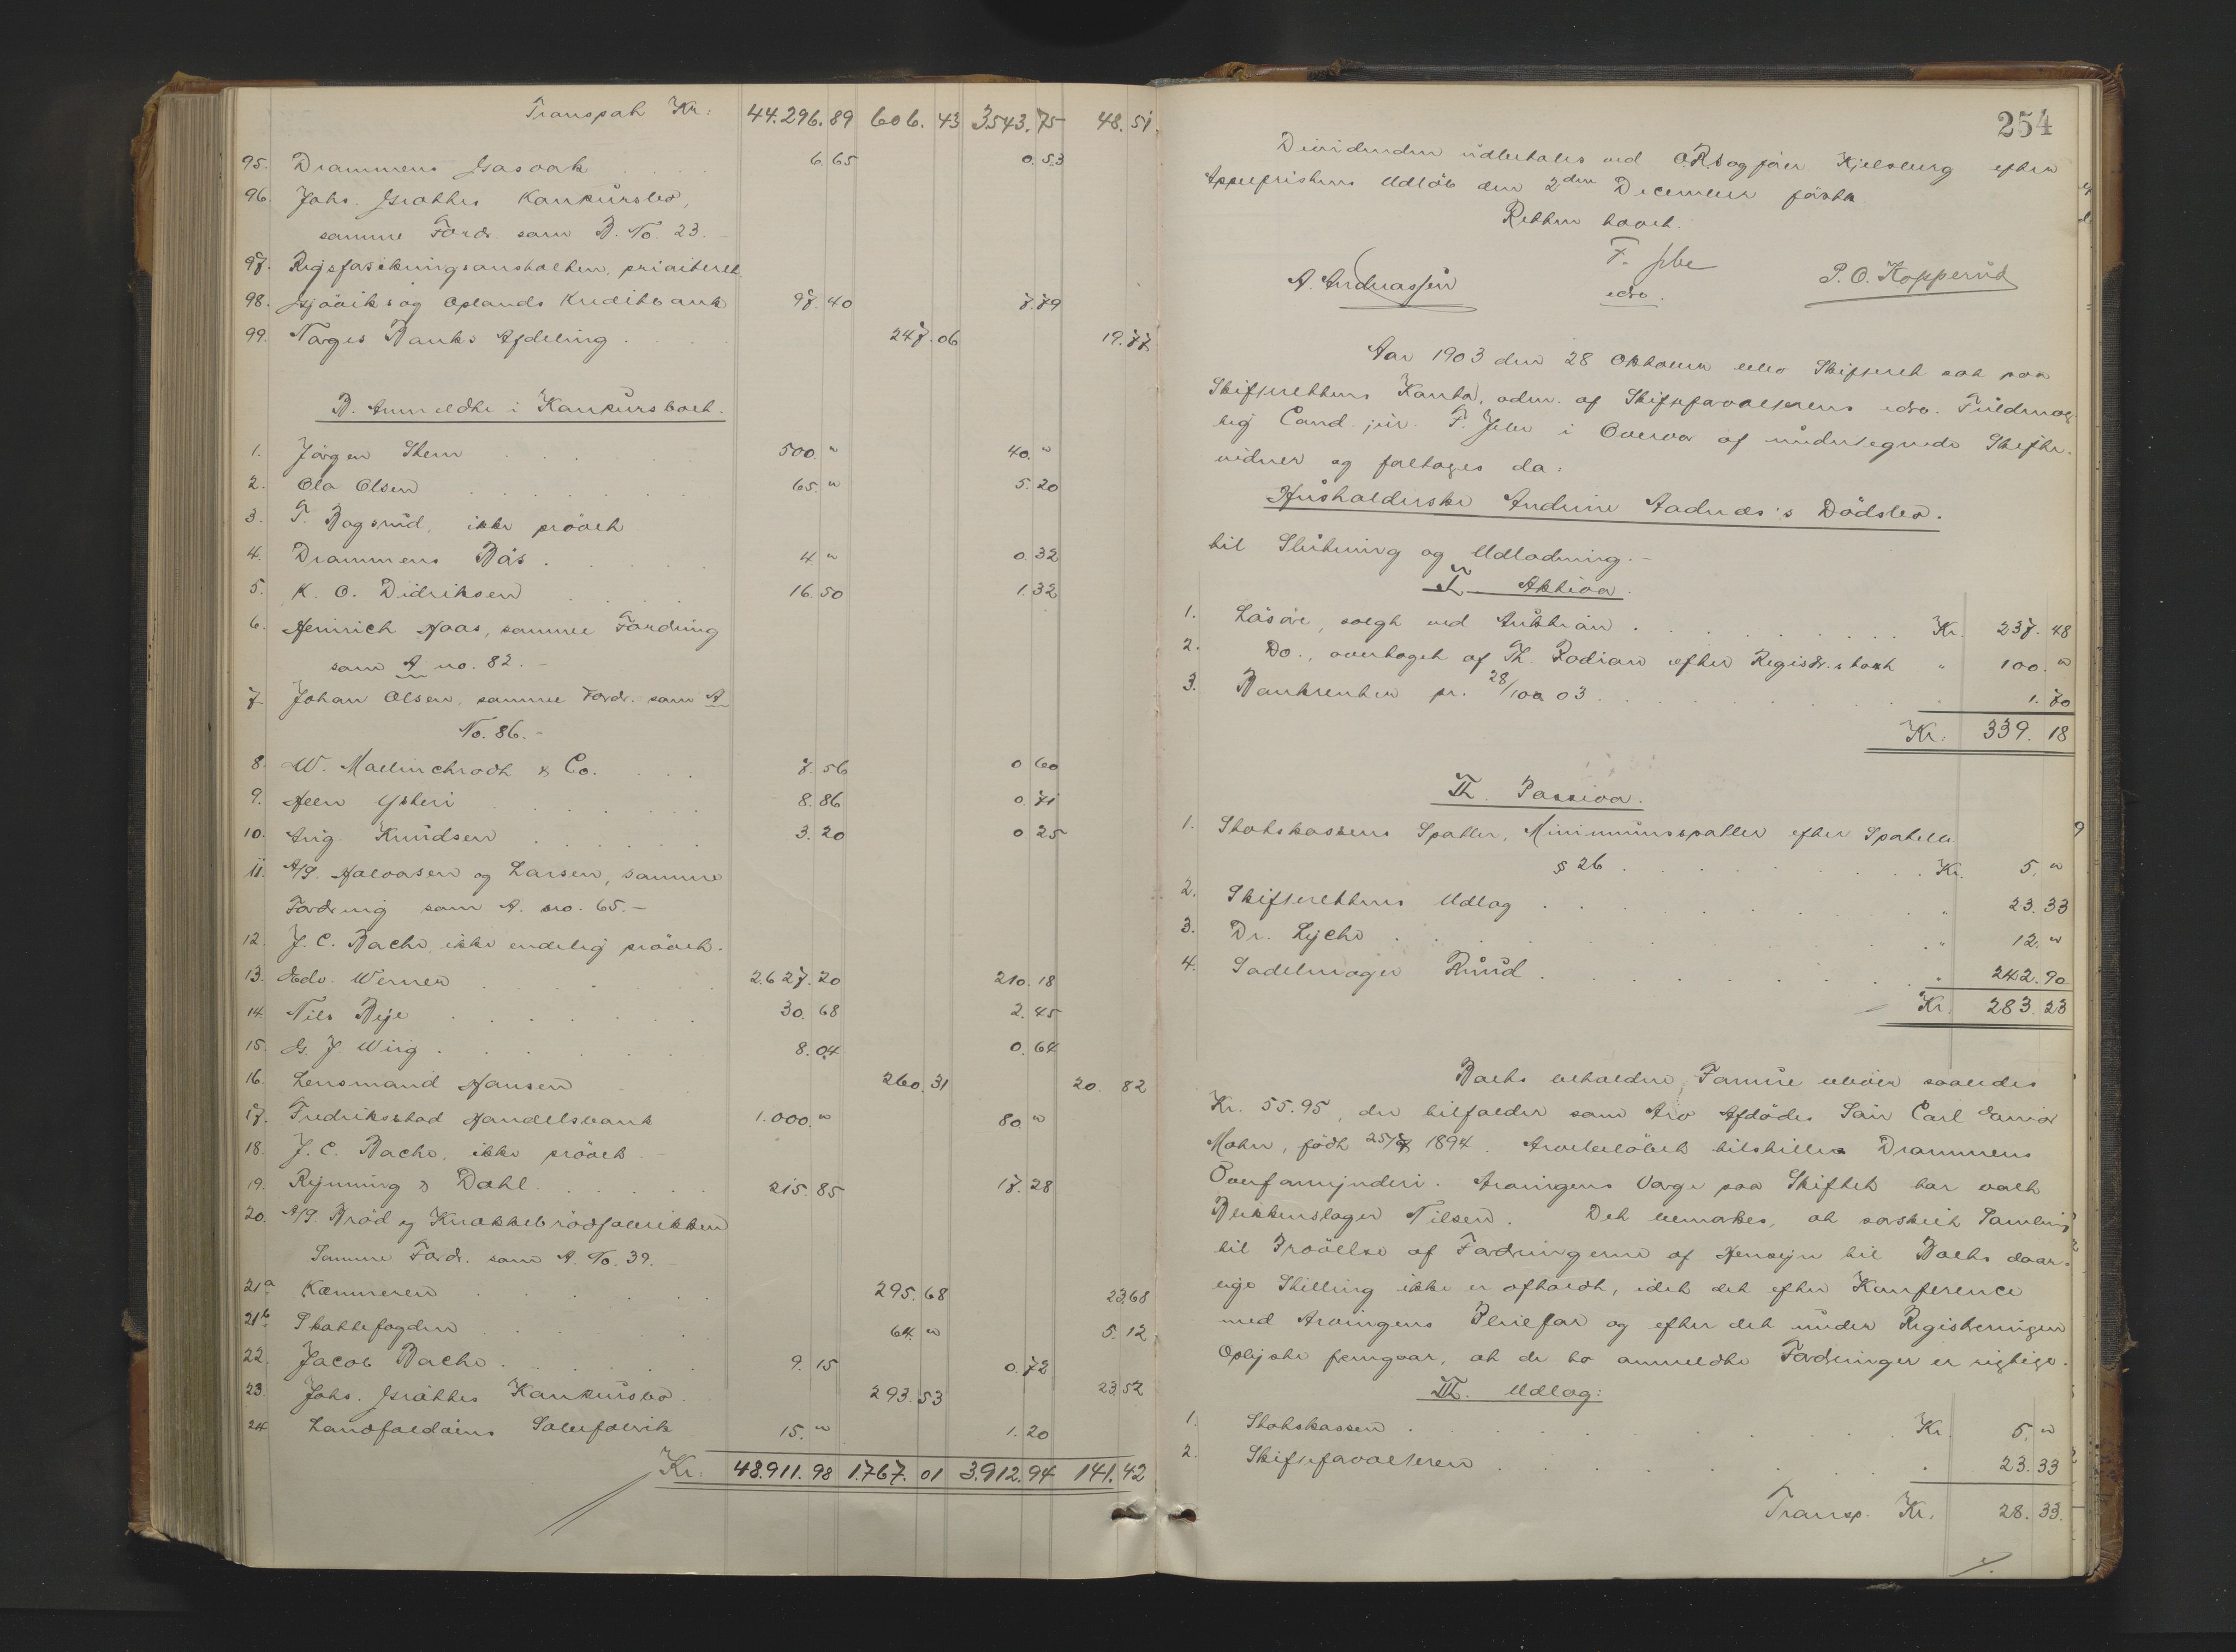 Transport Kr: 44.296.89 606.43 3543.75 48.51.
95. Drammens Gasværk 6.65 0.53
96. Johs. Grøttes Konkursbo,
samme Fordr. som B. No. 23.
97. Rigsforsikringsanstalten, prioriteret.
98. Gjøviks og Oplands Kreditbank 97.40 7.79
99. Norges Banks Afdeling 247.06 19.77
B. Anmeldte i Konkursboet.
1. Jørgen Steen 500. " 40. "
2. Ola Olsen 65. " 5.20
3. T. Bagsrud, ikke prøvet
4. Drammens Bås 4. " 0.32
5. K. O. Didriksen 16.50 1.32
6. Heinrich Haas, samme Fordring
som A no. 82. -
7. Johan Olsen, samme Fordr. som A
No. 86. -
8. W. Mallinchrodt & Co. 7.56 0.60
9. Heen Ysteri 8.86 0.71
10. Aug. Knudsen 3.20 0.25
11. A/S. Halvorsen og Larsen, samme
Fordring som A. no. 65. -
12. J. C. Bache, ikke endelig prøvet.
13. Edv. Werner 2.627.20 210.18
14. Nils Beje 30.68 2.45
15. G. J. Wiig 8.04 0.64
16. Lensmand Hansen 260.31 20.82
17. Fredrikstad Handelsbank 1.000. " 80. "
18. J. C. Bache, ikke prøvet -
19. Rynning & Dahl 215.85 17.28
20. A/S. Brød og Knækkebrødfabrikken
Samme Fordr. som A. No. 39.
21a Kæmneren 295.68 23.68
21b Skattefogden 64. " 5.12
22. Jacob Bache 9.15 0.72
23. Johs. Grøttes Konkursbo 293.53 23.52
24 Landfaldøiens Sæbefabrik 15. " 1.20
Kr: 48.911.98 1.767.01 3.912.94 141.42
254
Dividenden udbetales ved O.R.Sagfører Kjelsberg efter
Appelfristens Udløb den 2den December førstk.
Retten hævet.
F. Ihle
A. Andreassen edsv. P. O. Kopperud
Aar 1903 den 28 Oktober blev Skifteret sat paa
Skifterettens Kontor, adm. af Skifteforvalterens edsv. Fuldmæg-
tig Cand. jur. F. Ihle i Overvær af undertegnede Skifte-
vidner og foretoges da:
Husholderske Andrine Aadnæs's Dødsbo.
til Slutning og Udlodning. -
I Aktiva.
1. Løsøre, solgt ved Auktion Kr. 237.48
2. Do., overtaget af Th. Rodian efter Registr.stakst " 100. "
3. Bankrenter pr. 28/10 03 1.70
Kr: 339.18
II. Passiva.
1. Statskassens Sportler, Minimumssportler efter Sportell.
§ 26 Kr. 5. "
2. Skifterettens Udlæg " 23.33
3. Dr. Lyche " 12. "
4. Sadelmager Ruud " 242.90
Kr. 283.23
Boets beholdne Formue bliver saaledes
Kr. 55.95, der tilfalder som Arv Afdødes Søn Carl
Mohn, født 1894. Arvebeløbet tilstilles Drammens
Overformynderi. Arvingens Værge paa Skiftet har været
Blikkenslager Nilsen. Det bemærkes, at særskilt Samling
til Prøvelse af Fordringerne af Hensyn til Boets daar-
lige Stilling ikke er afholdt, idet det efter Konference
med Arvingens Pleiefar og efter det under Registreringen
Oplyste fremgaar, at de to anmeldte Fordringer er rigtige.
III. Udlæg:
1. Statskassen Kr. 5. "
2. Skifteforvalteren 23.33
Transp. Kr. 28.33.